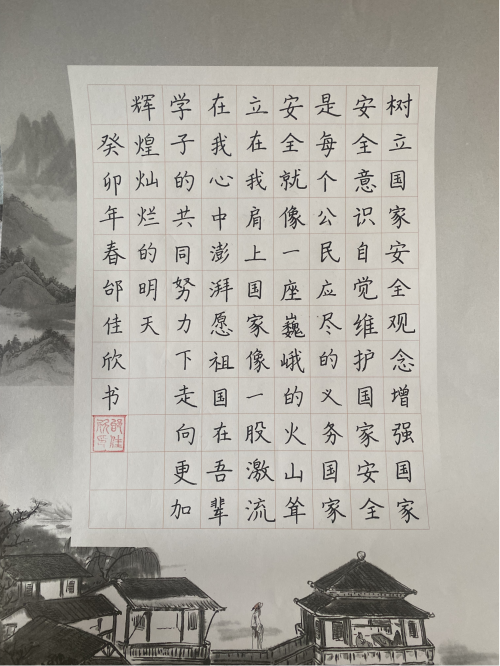 树立国家安全观念增强国家
安全意识自觉维护国家安全
是每个公民应尽的义务国家
安全就像一座巍峨的火山耸
立在我肩上国家像一股激流
在我心中澎湃愿祖国在吾辈
学子的共同努力下走向更加
辉煌灿烂的明天
癸卯年春邰佳欣书